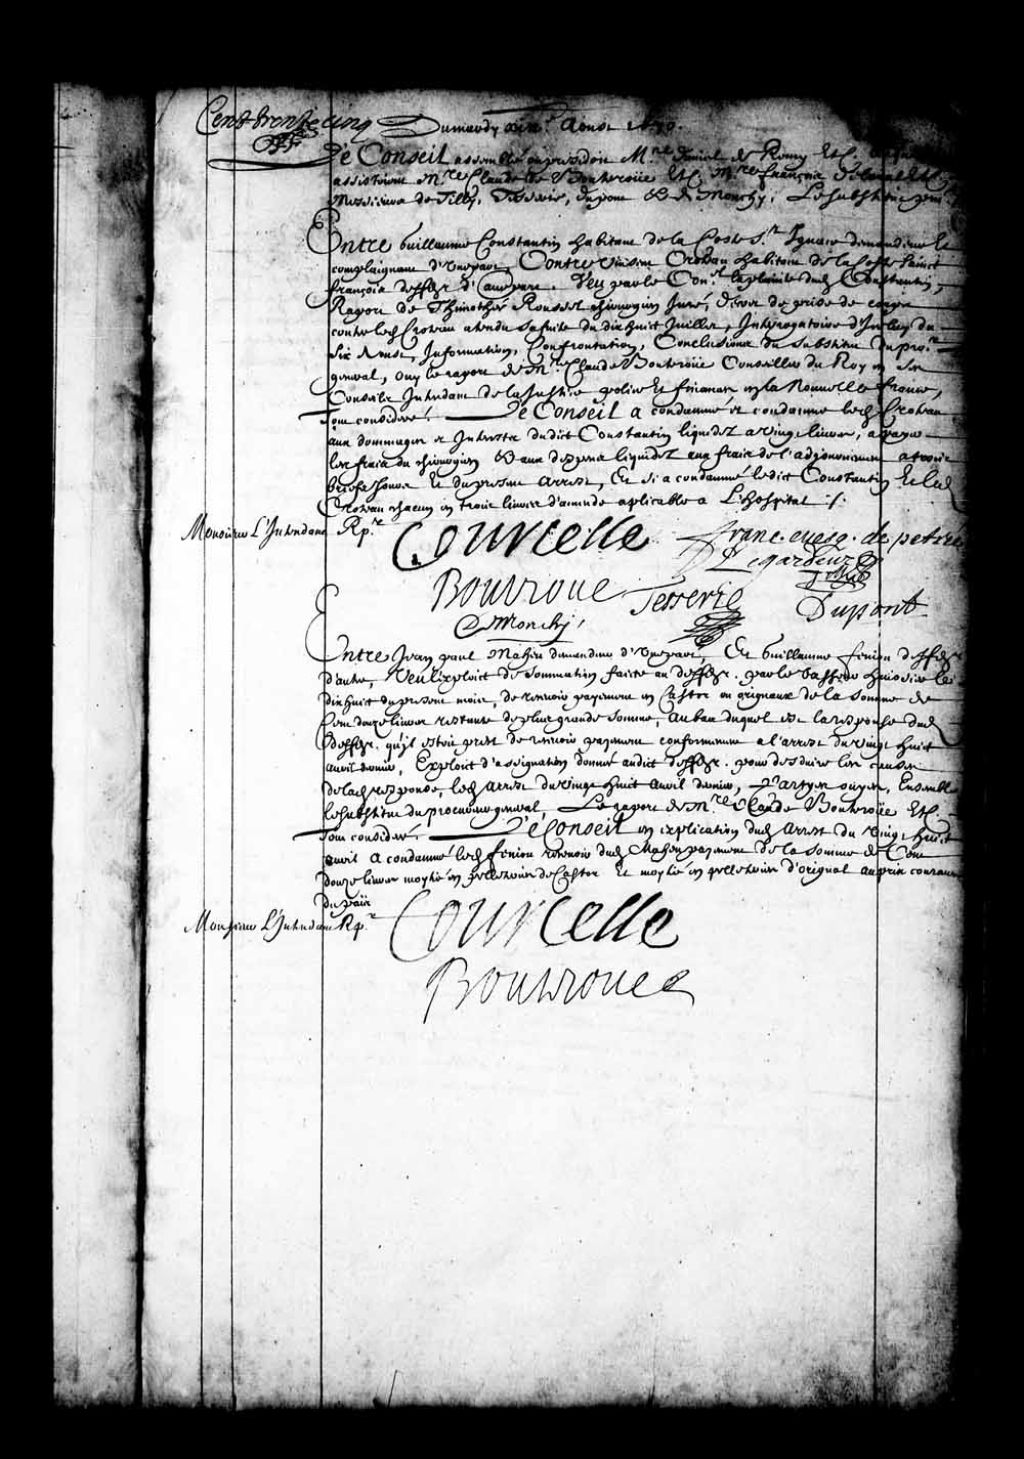 Cent trente cinq Du mardy Aoust
Le Conseil assemblé auquel presidoit Mre. daniel de Remy Etc.
assistoient Mre. Claude de Boutroüe Etc. Mre. françois de laval Etc.
Messieurs de Tilly, Tesserie, dupont & de Monchy, Le substitut
Entre Guillaume Constantin habitant de la Coste St. Ignace demandeur Et
complaignant d'une part, Contre Croteau habitant de la Coste sainct
françois deffr. d'autre part. Veu par le Conl. la plainte dud. Constantin,
Raport de Thimothée Roussel chirurgien Juré, decret de prise de corps
contre led. Croteau attendu sa fuite du dix huict Juillet, Interrogatoire d'Iceluy du
six Aoust, Information, Confrontation, Conclusions du substitut du pror.
general, ouy le raport de Mre. Claude Boutroüe Conseiller du Roy en ses
Conseils Intendant de la Justice police et finances en la Nouvelle france,
Tout consideré. Le Conseil a condamné et condamne led. Croteau
aux dommages et Interests dudict Constantin liquidez a vingt livres, a payer
les frais du chirurgien & aux depens liquidez aux frais de l'adjournement a trois
briefs Jours Et du present arrest, Et si a condamné ledict Constantin Et led.
Croteau chacun en trois livres d'amende aplicable a L'hospital ./.
Monsieur L'Intendant Rpr.
Courcelle franc. evesq. de petrée
Legardeur
Tilly
Boutroue Tesserie Dupont
De Monchy
Entre Jean paul Maheu demandeur d'une part, Et Guillaume feniou deffr.
d'autre, Veu l'exploict de sommation faicte au deffr. par le Vasseur huissier le
dix huict du present mois, de recevoir payement en Castor ou orignaux de la somme de
Cent douze livres restante de plus grande somme, au bas duquel est la response dud.
deffr. qu'il estoit prest de recevoir payement conformement a l'arrest du vingt huict
avril dernier, Exploict d'assignation donné audict deffr. pour desduire les causes
de lad. response, led. arrest du vingt huict avril dernier, Partyes ouyes, Ensemble
le substitut du procureur general, Le raport de Mre. Claude Boutroüe Etc.
Tout consideré. Le Conseil en explication dud. Arrest du vingt huict
avril a condamné led. feniou recevoir dud. Maheu payement de la somme de Cent
douze livres moytié en pelleteries de Castor Et moytié en pelleteries d'orignal au prix courant
du païs
Monsieur L'Intendant Rpr.
Courcelle
Boutroue